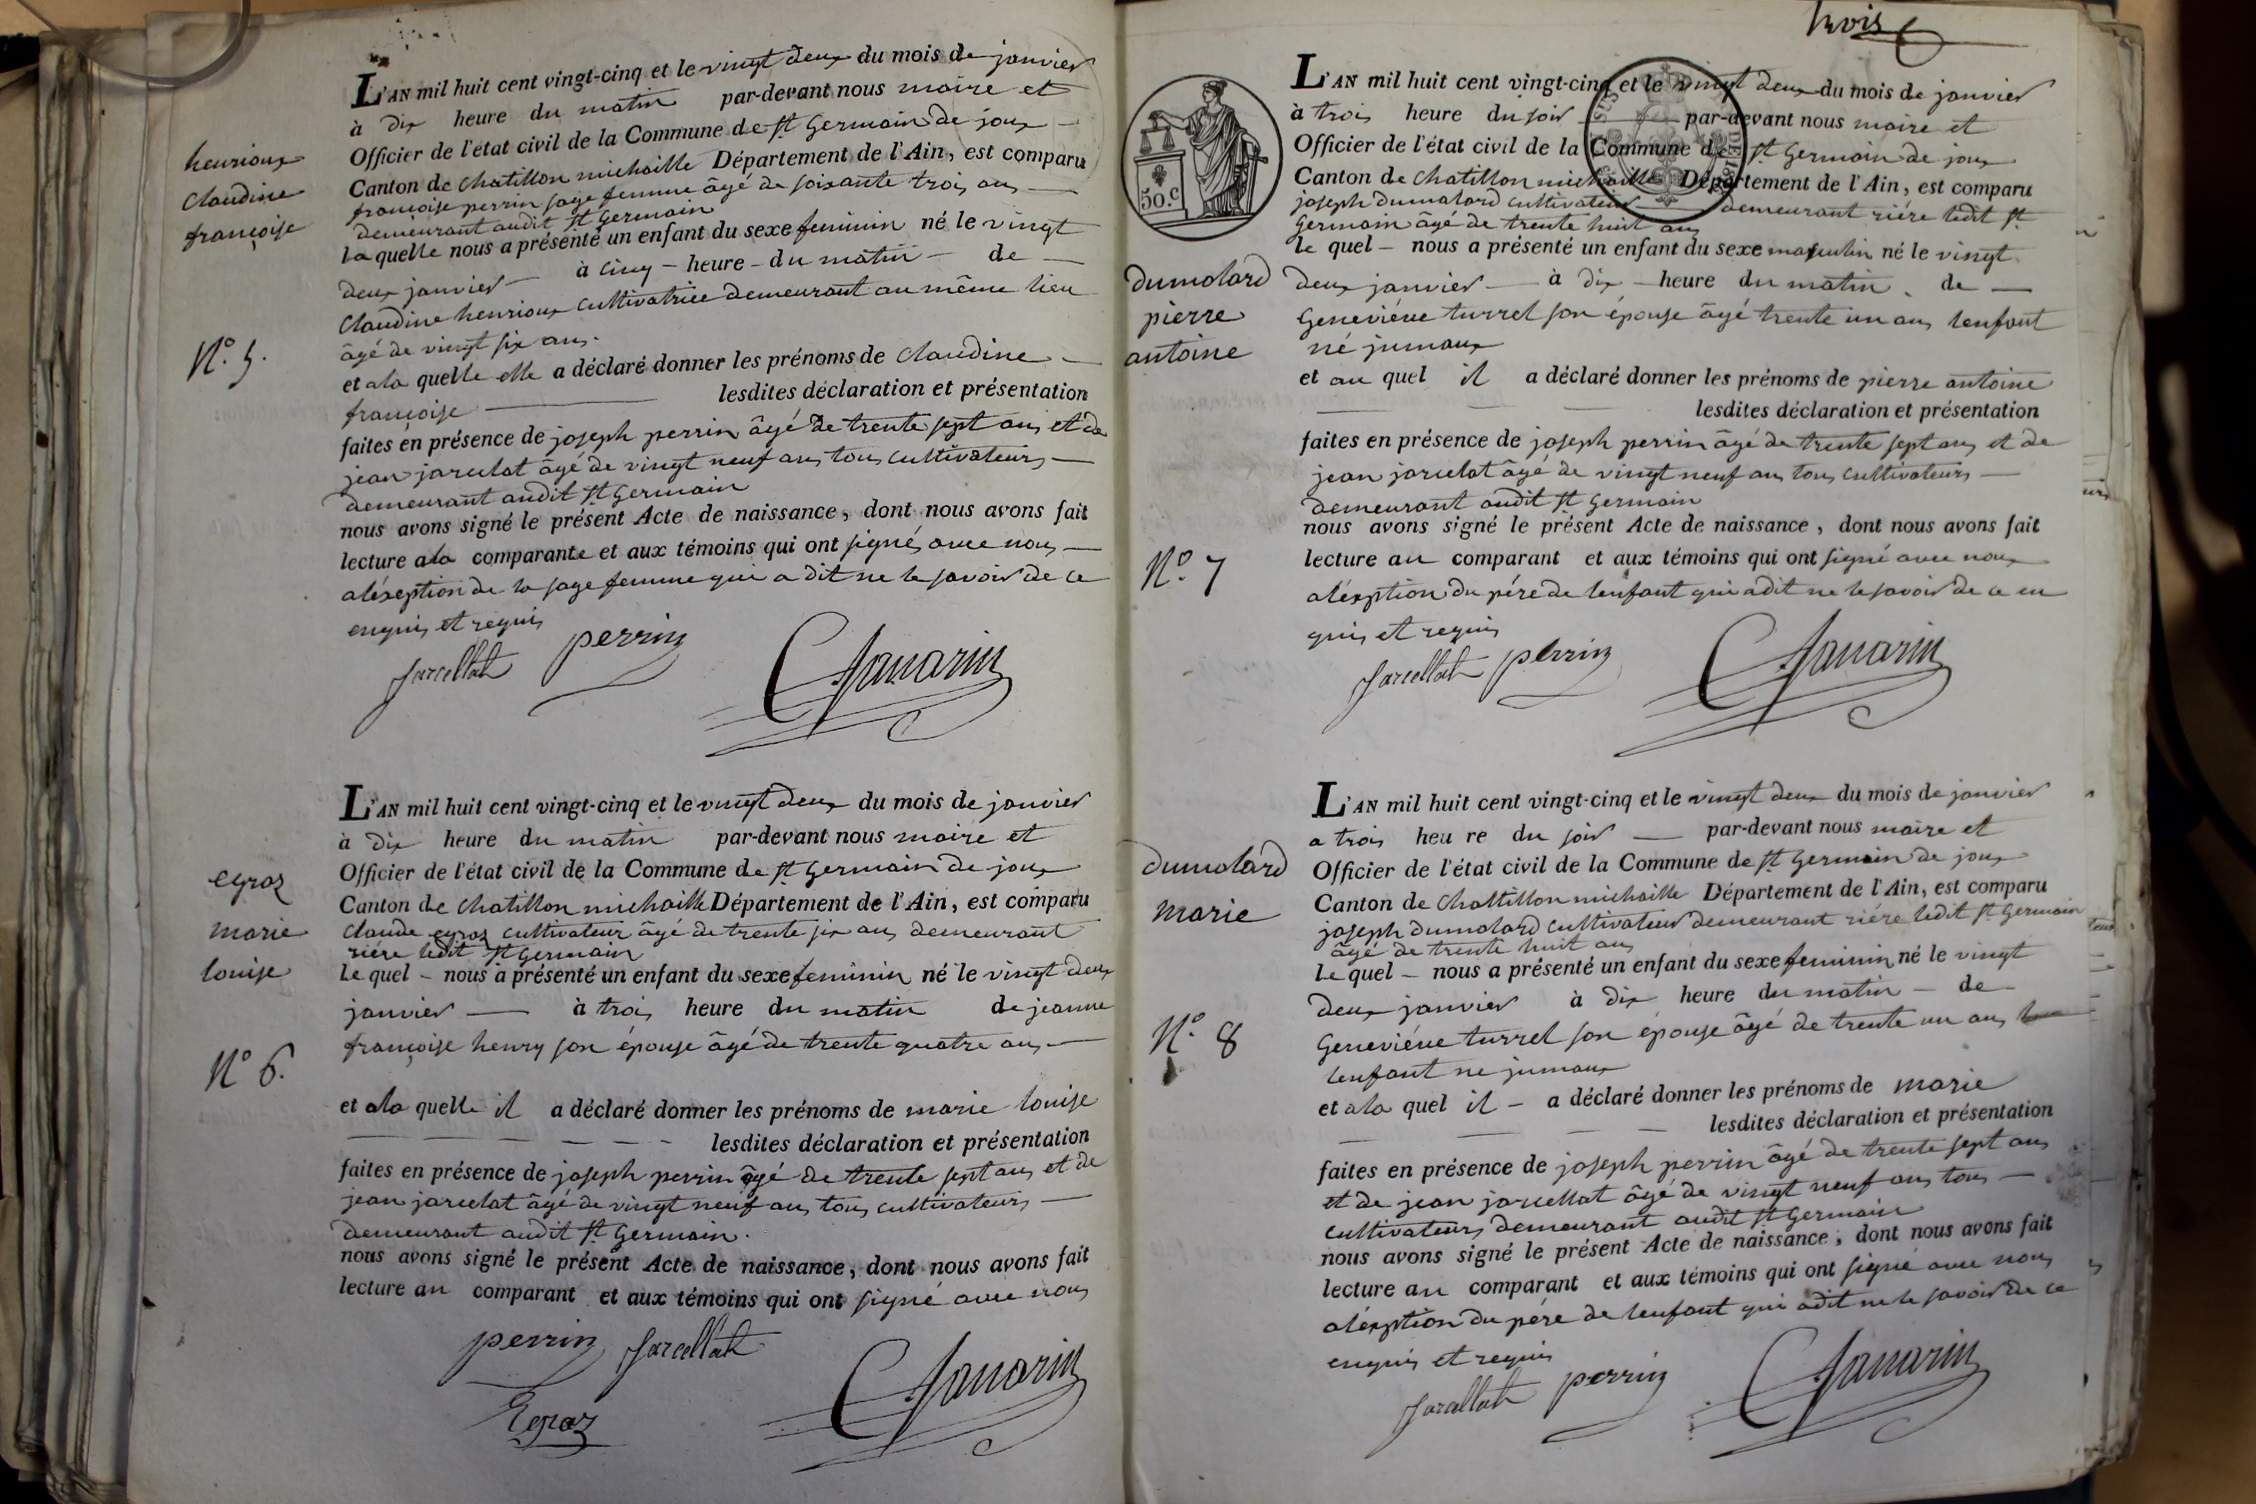 henrioux
claudine
françoise
N.° 5.
L'AN mil huit cent vingt-cinq et le vingt deux du mois de janvier
à dix heure du matin par-devant nous maire et
Officier de l'état civil de la Commune de St Germain de joux
Canton de chatillon michaille Département de l'Ain, est comparu
françoise perrin sage femme âgé de soixante trois ans
demeurant audit St Germain
la quelle nous a présenté un enfant du sexe feminin né le vingt
deux janvier à cinq heure du matin de
Claudine henrioux cultivatrice demeurant au même lieu
âgé de vingt six ans.
et ala quelle elle a déclaré donner les prénoms de claudine
françoise lesdites déclaration et présentation
faites en présence de joseph perrin âgé de trente sept ans et de
jean jarcelat âgé de vingt neuf ans tous cultivateurs
demeurant audit St Germain
nous avons signé le présent Acte de naissance, dont nous avons fait
lecture ala comparante et aux témoins qui ont signés avec nous
aléxeption de la sage femme qui a dit ne le savoir de ce
enquis et requis
Jarcellat perrin
egraz
marie
louise
N° 6.
L'AN mil huit cent vingt-cinq et le vingt deux du mois de janvier
à dix heure du matin par-devant nous maire et
Officier de l'état civil de la Commune de St Germain de joux
Canton de chatillon michaille Département de l'Ain, est comparu
claude egraz cultivateur âgé de trente six ans demeurant
riére ledit St Germain
Le quel nous a présenté un enfant du sexe feminin né le vingt deux
janvier à trois heure du matin de jeanne
françoise henry son épouse âgé de trente quatre ans
et ala quelle il a déclaré donner les prénoms de marie louise
lesdites déclaration et présentation
faites en présence de joseph perrin âgé de trente sept ans et de
jean jarcelat âgé de vingt neuf ans tous cultivateurs
demeurant audit St Germain.
nous avons signé le présent Acte de naissance, dont nous avons fait
lecture au comparant et aux témoins qui ont signé avec nous
perrin Jarcellat
Egraz
trois
50.c
dumolard
pierre
antoine
N.° 7
L'AN mil huit cent vingt-cinq et le vingt deux du mois de janvier
à trois heure du soir par-devant nous maire et
Officier de l'état civil de la Commune de St Germain de joux
Canton de chatillon michaille Département de l'Ain, est comparu
joseph dumolard cultivateur demeurant riére ledit St
Germain âgé de trente huit ans
Le quel nous a présenté un enfant du sexe masculin né le vingt
deux janvier à dix heure du matin de
Geneviéve turrel son épouse âgé trente un ans lenfant
né jumaux
et au quel il a déclaré donner les prénoms de pierre antoine
lesdites déclaration et présentation
faites en présence de joseph perrin âgé de trente sept ans et de
jean jarcelat âgé de vingt neuf ans tous cultivateurs
demeurant audit St Germain
nous avons signé le présent Acte de naissance, dont nous avons fait
lecture au comparant et aux témoins qui ont signé avec nous
aléxption du pére de lenfant qui adit ne le savoir de ce en
quis et requis
Jarcellat perrin
dumolard
marie
N.° 8
L'AN mil huit cent vingt-cinq et le vingt deux du mois de janvier
a trois heu re du soir par-devant nous maire et
Officier de l'état civil de la Commune de St Germain de joux
Canton de Chattillon michaille Département de l'Ain, est comparu
joseph dumolard cultivateur demeurant riére ledit St Germain
âgé de trente huit ans
Le quel nous a présenté un enfant du sexe feminin né le vingt
deux janvier à dix heure du matin de
Geneviéve turrel son épouse âgé de trente un ans
lenfant ne jumaux
et ala quel il a déclaré donner les prénoms de marie
lesdites déclaration et présentation
faites en présence de joseph perrin âgé de trente sept ans
et de jean jarcellat âgé de vingt neuf ans tous
cultivateurs demeurant audit St Germain
nous avons signé le présent Acte de naissance, dont nous avons fait
lecture au comparant et aux témoins qui ont signé avec nous
aléxption du pére de lenfant qui adit ne le savoir de ce
enquis et requis
Jarcellat perrin